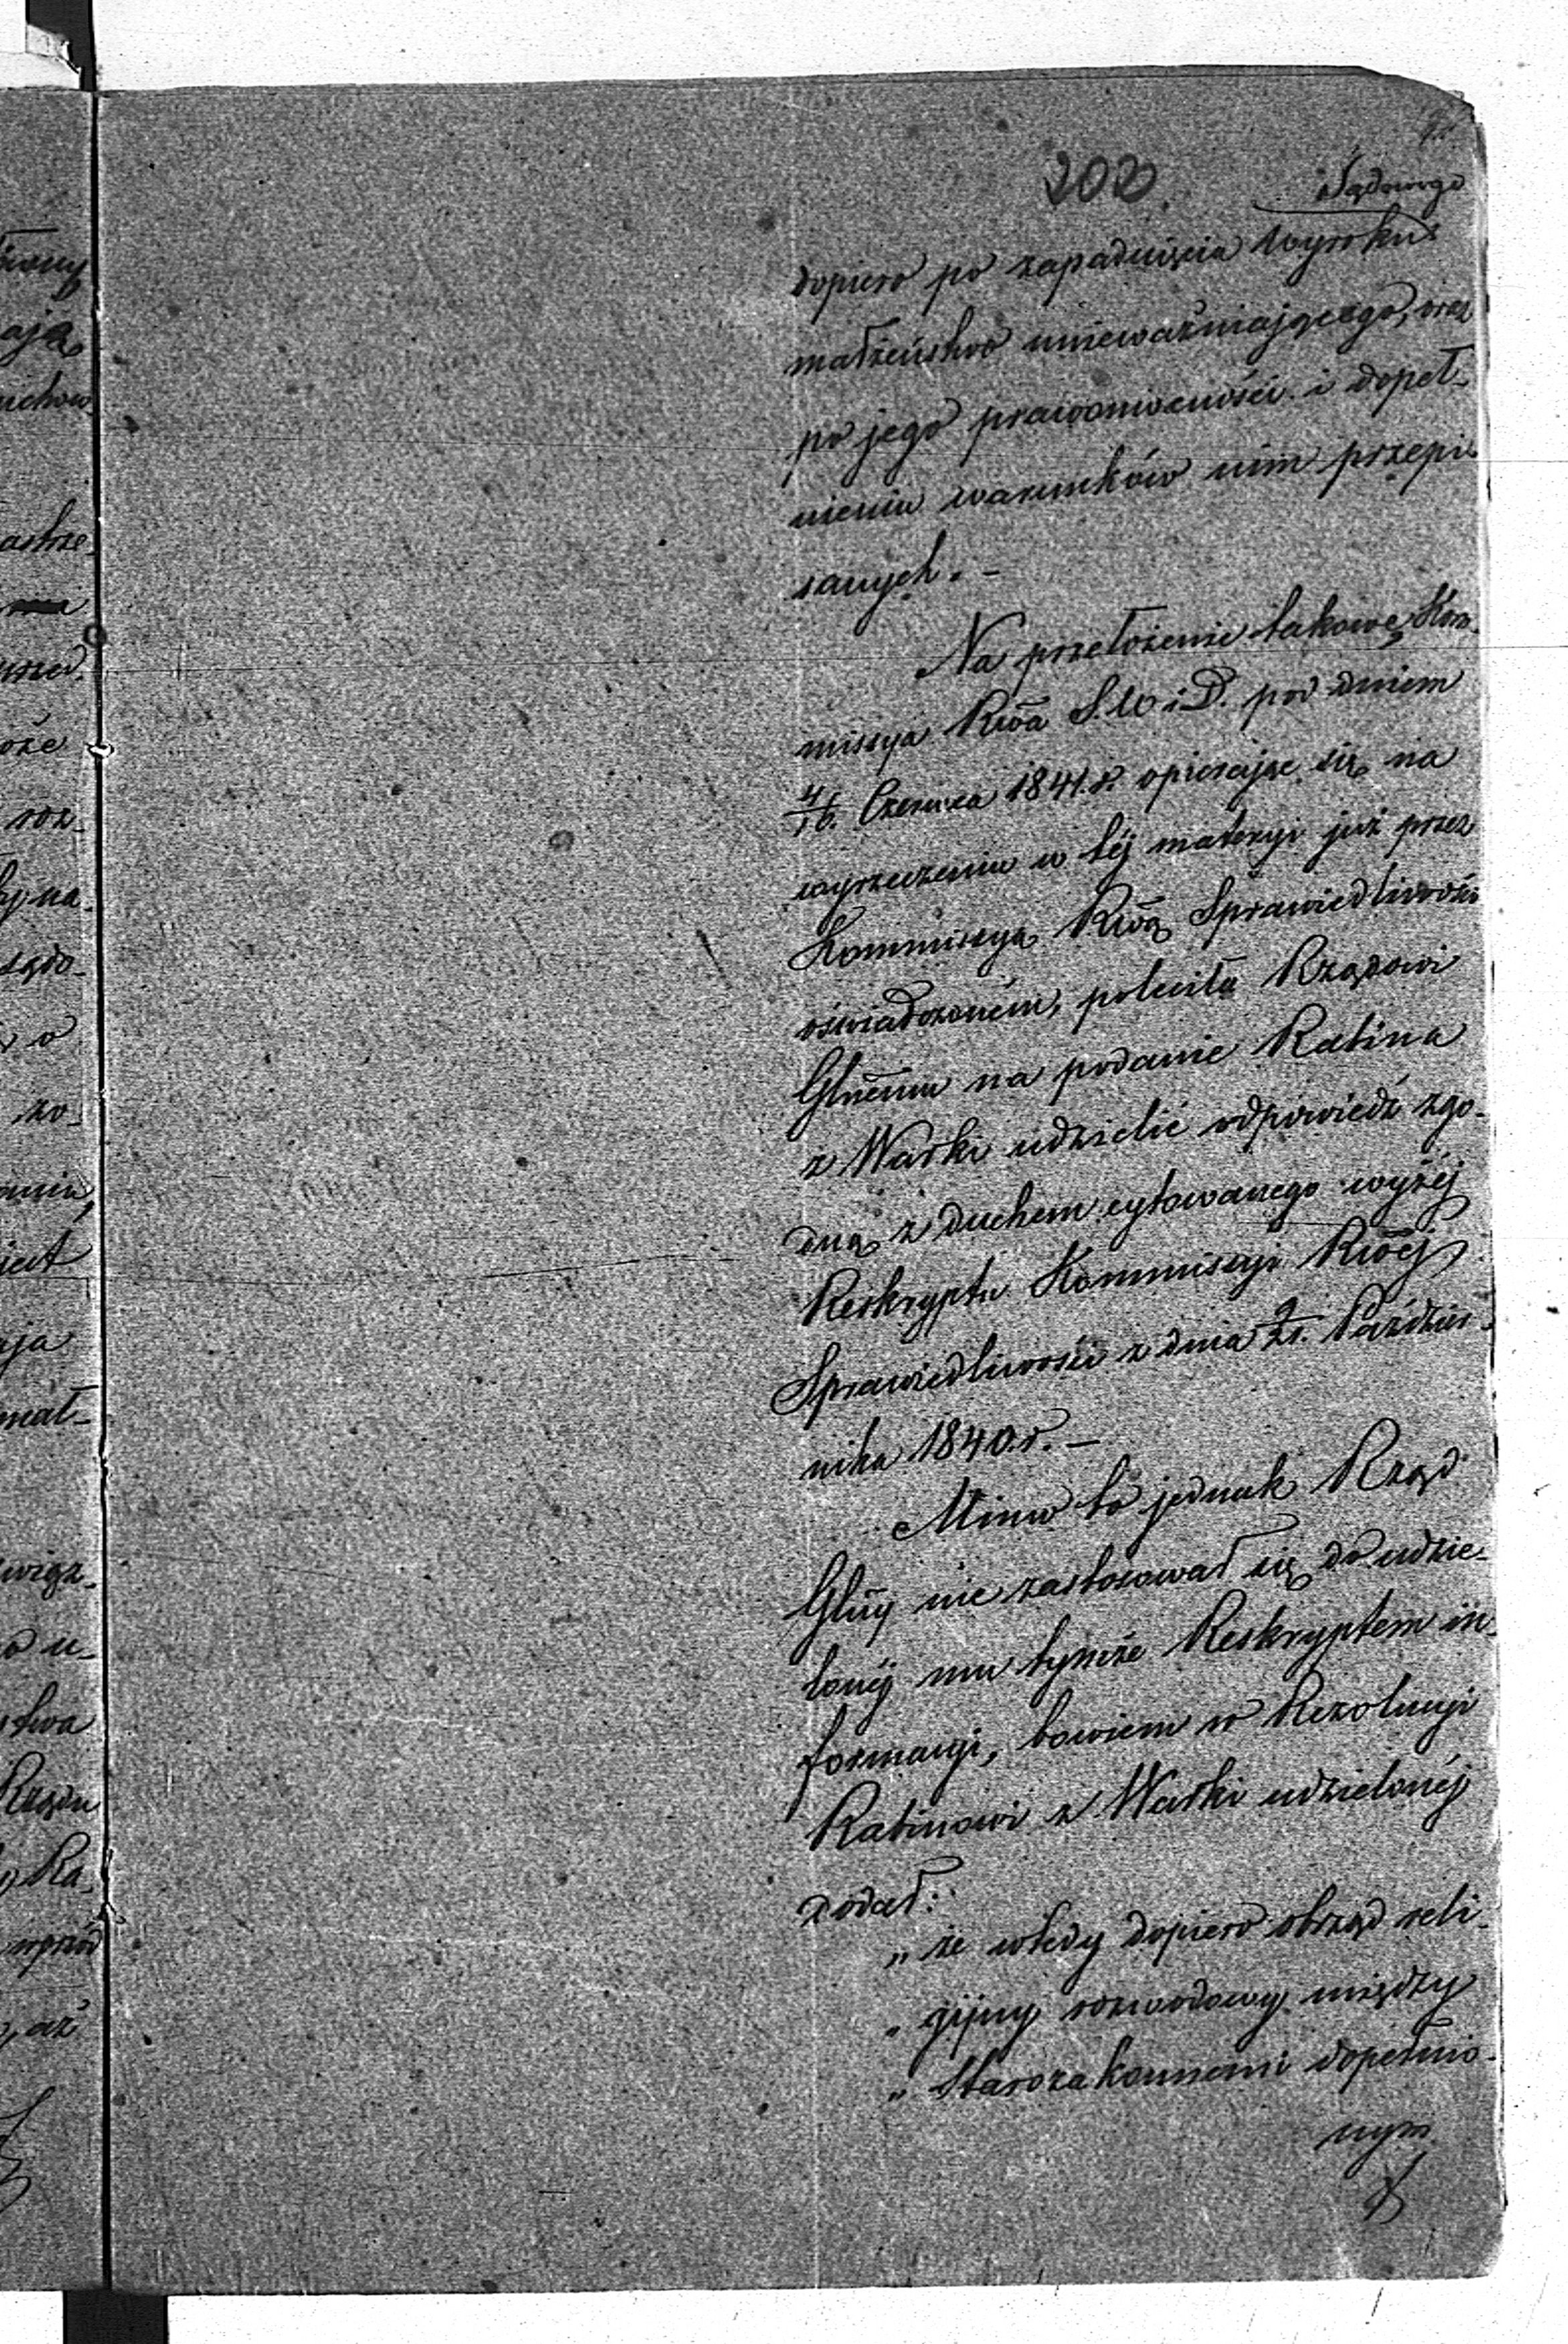 203.
Sądowego
dopiero po zapadnięciu Wyroku
małżeństwo unieważniającego, oraz
po jego prawomocności i dopeł-
nieniu warunków nim przepi
sanych. -
Na przełożenie takowe, Kom-
missya Rwa S. W i D. pod dniem
4/16. Czerwca 1841. r. opierając się na
wyrzeczeniu w téj materyi już przez
Kommissyą Rwą Sprawiedliwości
oświadczoném, poleciła Rządowi
Glnemu na podanie Rabina
z Warki udzielić odpowiedź zgo-
dną z duchem cytowanego wyżéj
Reskryptu Kommissyi Rwéj
Sprawiedliwości z dnia 9/21. Paździer-
nika 1840. r. -
Mimo to jednak Rząd
Glny nie zastosował się do udzie-
lonéj mu tymże Reskryptem in-
formacyi, bowiem w Rezolucyi
Rabinowi z Warki udzielonéj
dodał:
„ że wtedy dopiero obrząd reli-
„ gijny rozwodowy między
„ Starozakonnemi dopełnio-
nym